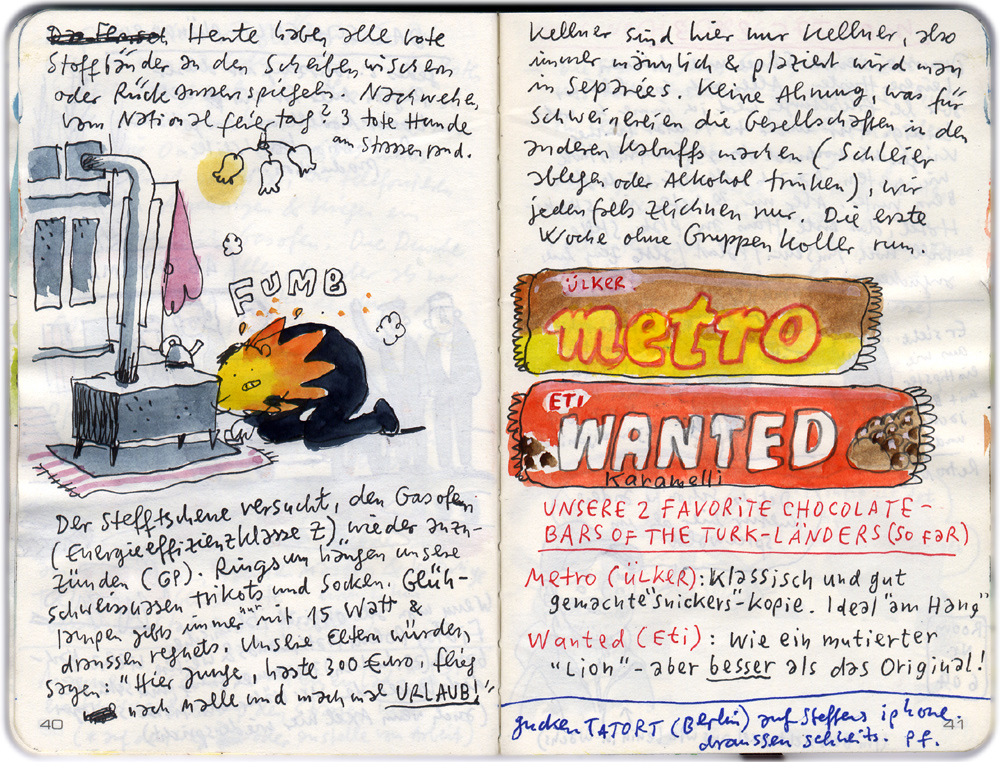 Heute haben alle rote
Stoffbänder an den Scheibenwischern
oder Rückaussenspiegeln. Nachwehen
vom Nationalfeiertag? 3 tote Hunde
am Strassenrand.
FUMB
Der Stefftschene versucht, den Gasofen
(Energieeffizienzklasse Z) wieder anzu-
zünden (GP). Ringsum hängen unsere
schweissnassen Trikots und Socken. Glüh-
lampen gibts immer nur mit 15 Watt &
draussen regnets. Unsere Eltern würden
sagen: "Hier Junge, haste 300 €uro, flieg
nach Malle und mach mal URLAUB!"
40
Kellner sind hier nur Kellner, also
immer männlich & plaziert wird man
in Separées. Keine Ahnung, was für
Schweinereien die Gesellschaften in den
anderen Kabuffs machen (Schleier
ablegen oder Alkohol trinken), wir
jedenfalls zeichnen nur. Die erste
Woche ohne Gruppenkoller rum.
ÜLKER
metro
ETi
WANTED
Karamelli
UNSERE 2 FAVORITE CHOCOLATE-
BARS OF THE TURK-LÄNDERS (SO FAR)
Metro (ÜLKER): Klassisch und gut
gemachte "Snickers"-Kopie. Ideal "am Hang"
Wanted (Eti): Wie ein mutierter
"Lion" - aber besser als das Original!
gucken TATORT (Berlin) auf Steffens iphone,
draussen schneits. pf.
41